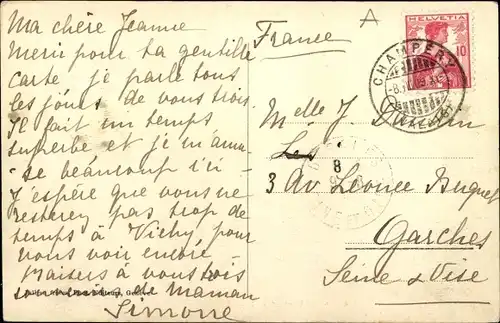 Ma chère Jeanne
Merci pour ta gentille
carte je parle tous
les jours de vous trois.
Il fait un temps
superbe et je m'amu-
-se beaucoup ici -
J'espère que vous ne
resterez pas trop de
temps à Vichy pour
vous voir encore -
Baisers à vous tous
souvenirs de Maman
Simone
France
A
HELVETIA
10
CHAMPÉRY
(VALAIS)
Melle J.
3 Av Léonce Buquet
Garches
Seine & Oise
8